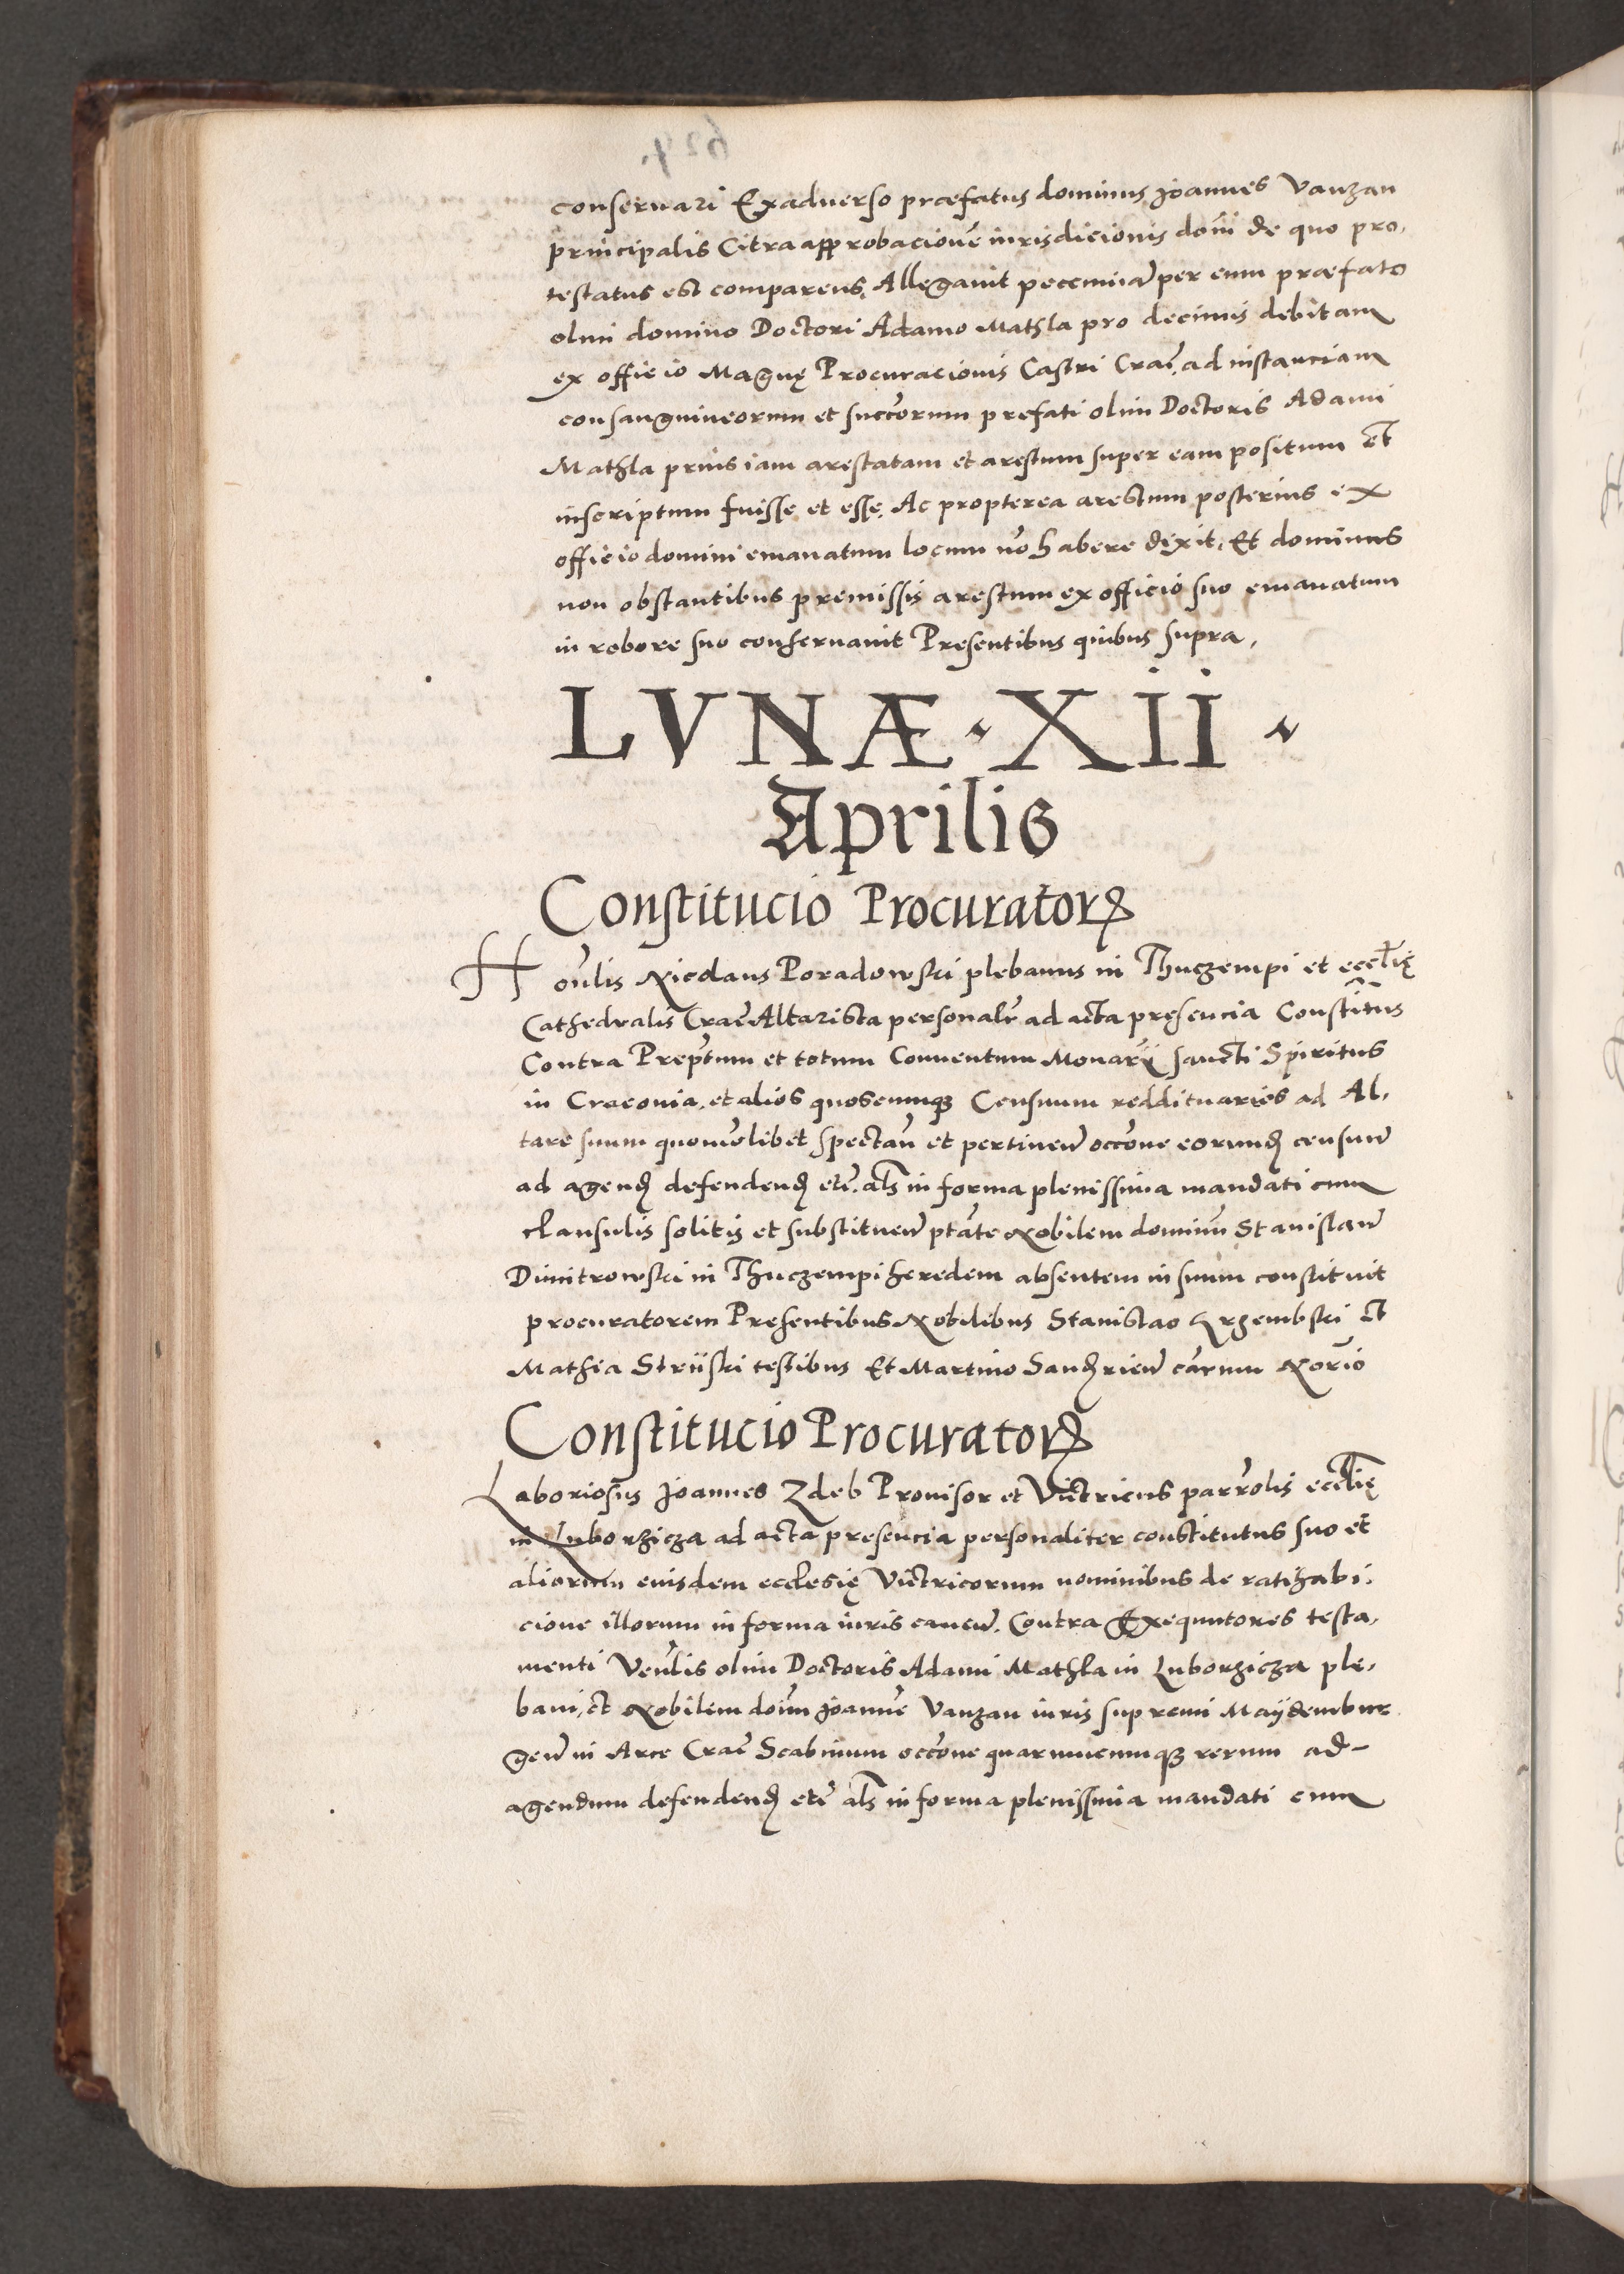 conseruari Exaduerso præfatus dominus Joannes Vanzan
principalis Citra approbacionẽ iurisdicionis dom̃i de quo pro,
testatus est comparens, Allegauit peccuniã per eum præfato
olim domino Doctori Adamo Mathla pro decimis debitam
ex officio Magnę Procuracionis Castri Crac̃, ad instanciam
consanguineorum et succ̃orum prefati olim Doctoris Adami
Mathla prius iam arestatam et arestum super eam positum Et
inscriptum fuisse et esse, Ac propterea arestum posterius ex
officio domini emanatum locum nõ habere dixit, Et dominus
non obstantibus premissis arestum ex officio suo emanatum
in robore suo conseruauit Presentibus quibus supra,
LVNÆ · XII ·
Aprilis
Constitucio Procuratorꝝ
Hon̉lis Nicolaus Poradowski plebanus in Thuczempi et eccl̃ię
Cathedralis Crac̃ Altarista personalr̃ ad acta presencia Constit̃us
Contra Prep̃tum et totum Conuentum Monar̃ii sancti Spiritus
in Cracouia, et alios quoscumqꝫ Censuum reddituarios ad Al,
tare suum quomõlibet spectan̄ et pertinen̄ occõne eorund̃ censuũ
ad agend̃ defendend̃ etc̃. al̃s in forma plenissima mandati cum
clausulis solitis et substituen̄ ptãte Nobilem dominũ Stanislaũ
Dimitrowski in Thuczempi heredem absentem in suum constituit
procuratorem Presentibus Nobilibus Stanislao Krzembski et
Mathia Striiski testibus Et Martino Sand̃rien̄ cãrum Nor̃io
Constitucio Procuratorꝝ
Laboriosus Joannes Zdeb Prouisor et Victricus parr̃olis eccl̃ię
in Luborzicza ad acta presencia personaliter constitutus suo et
aliorum eiusdem ecclesię Victricorum nominibus de ratihabi,
cione illorum in forma iuris cauen̄. Contra Exequutores testa,
menti Ven̉lis olim Doctoris Adami Mathla in Luborzicza ple,
bani, et Nobilem doñum Joannẽ Vanzan iuris supremi Maÿdembur
gen̄ in Arce Crac̃ Scabinum occõne quarumcumqꝫ rerum ad-
agendum defendend̃ etc̃ al̃s in forma plenissima mandati cum